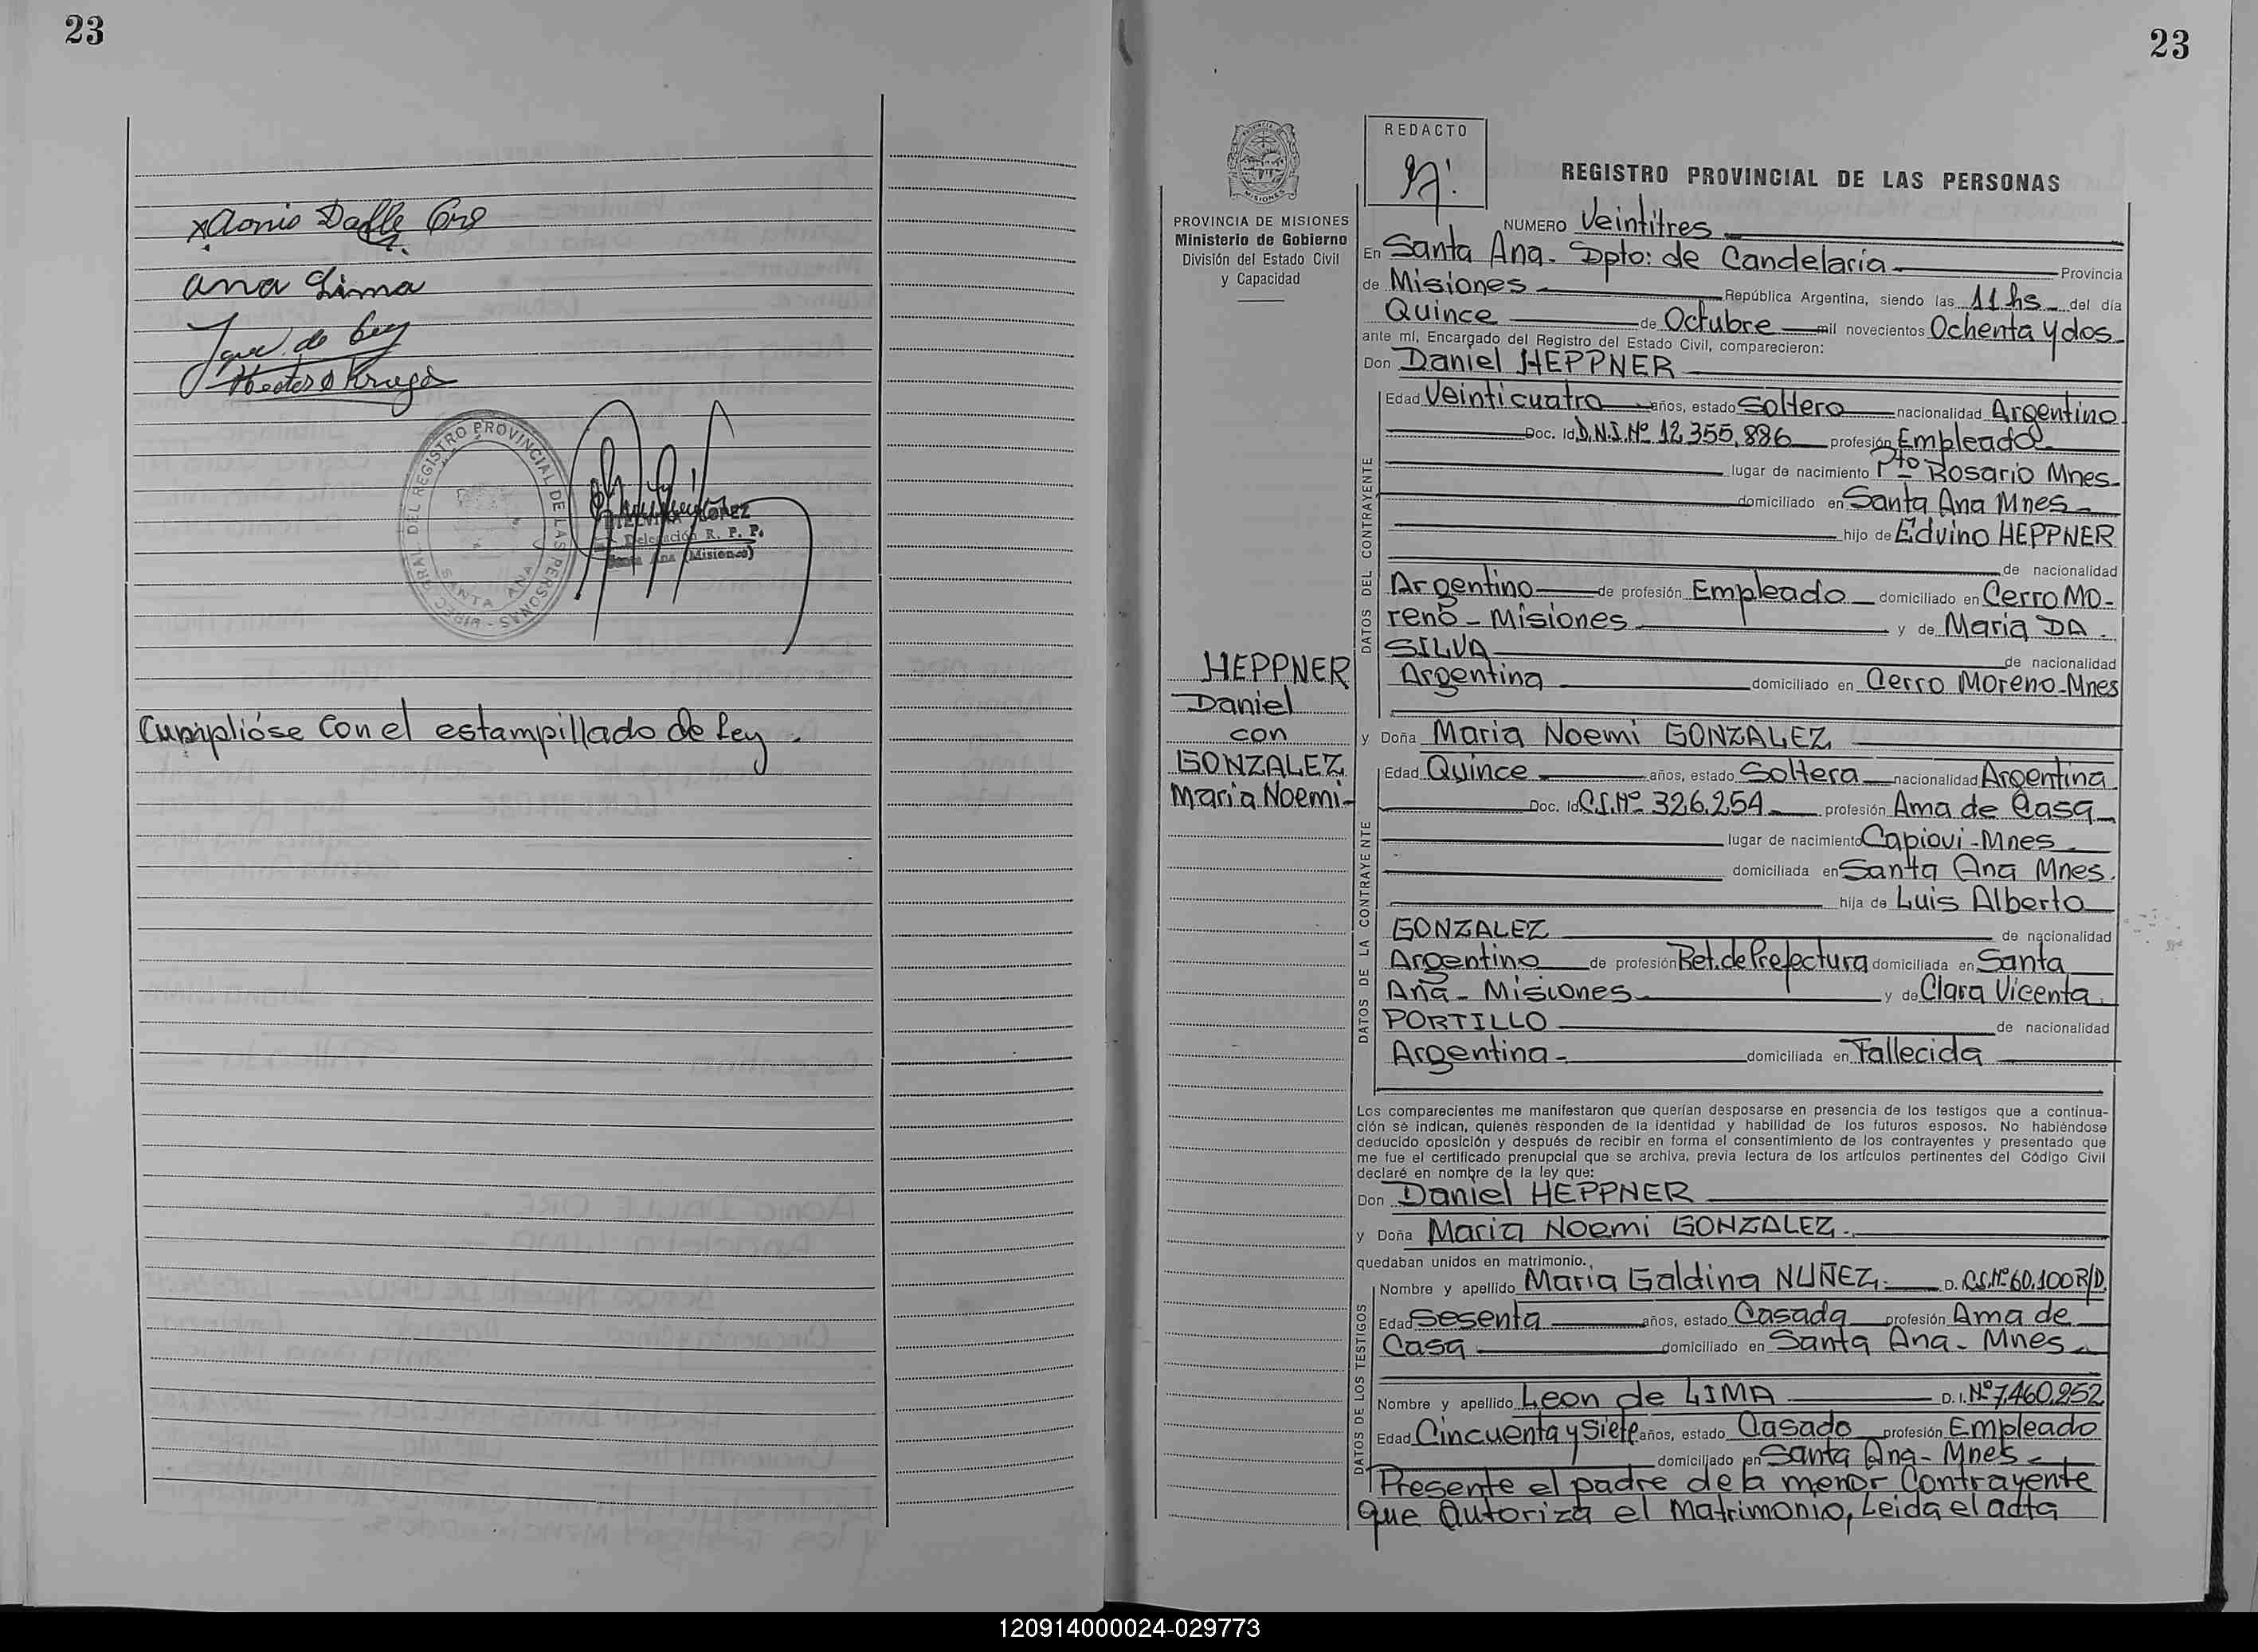 23
Adonis Dalle Cre
Ana Lima
Cumplióse con el estampillado de Ley.
DIREC. GRAL. DEL REGISTRO PROVINCIAL DE LAS PERSONAS
SANTA ANA
LOPEZ
Delegación R. P. P.
Santa Ana (Misiones)
23
PROVINCIA DE MISIONES
Ministerio de Gobierno
División del Estado Civil
y Capacidad
HEPPNER
Daniel
con
GONZALEZ
Maria Noemi
REDACTO
REGISTRO PROVINCIAL DE LAS PERSONAS
NUMERO Veintitres
En Santa Ana. Dpto: de Candelaria Provincia
de Misiones República Argentina, siendo las 11 hs del día
Quince de Octubre mil novecientos Ochenta y dos
ante mí, Encargado del Registro del Estado Civil, comparecieron:
Don Daniel HEPPNER
DATOS DEL CONTRAYENTE
Edad Veinticuatro años, estado Soltero nacionalidad Argentino
Doc. Id D.N.I. Nº 12.355.886 profesión Empleado
lugar de nacimiento Pto Rosario Mnes
domiciliado en Santa Ana Mnes
hijo de Edvino HEPPNER
de nacionalidad
Argentino de profesión Empleado domiciliado en Cerro MO-
reno - Misiones y de Maria DA
SILVA de nacionalidad
Argentina domiciliado en Cerro Moreno-Mnes
y Doña Maria Noemi GONZALEZ
DATOS DE LA CONTRAYENTE
Edad Quince años, estado Soltera nacionalidad Argentina
Doc. Id C.I. Nº 326.254 profesión Ama de Casa
lugar de nacimiento Capiovi - Mnes
domiciliada en Santa Ana Mnes.
hija de Luis Alberto
GONZALEZ de nacionalidad
Argentino de profesión Ret. de Prefectura domiciliada en Santa
Ana - Misiones y de Clara Vicenta
PORTILLO de nacionalidad
Argentina domiciliada en Fallecida
Los comparecientes me manifestaron que querían desposarse en presencia de los testigos que a continua-
ción se indican, quienes responden de la identidad y habilidad de los futuros esposos. No habiéndose
deducido oposición y después de recibir en forma el consentimiento de los contrayentes y presentado que
me fue el certificado prenupcial que se archiva, previa lectura de los artículos pertinentes del Código Civil
declaré en nombre de la ley que:
Don Daniel HEPPNER
y Doña Maria Noemi GONZALEZ
quedaban unidos en matrimonio.
DATOS DE LOS TESTIGOS
Nombre y apellido Maria Galdina NUÑEZ D. C.I. Nº 60.100 R/D.
Edad Sesenta años, estado Casada profesión Ama de
Casa domiciliado en Santa Ana - Mnes
Nombre y apellido Leon de LIMA D. I. Nº 7.460.252
Edad Cincuenta y Siete años, estado Casado profesión Empleado
domiciliado en Santa Ana - Mnes
Presente el padre de la menor Contrayente
que Autoriza el Matrimonio, Leida el acta
120914000024-029773